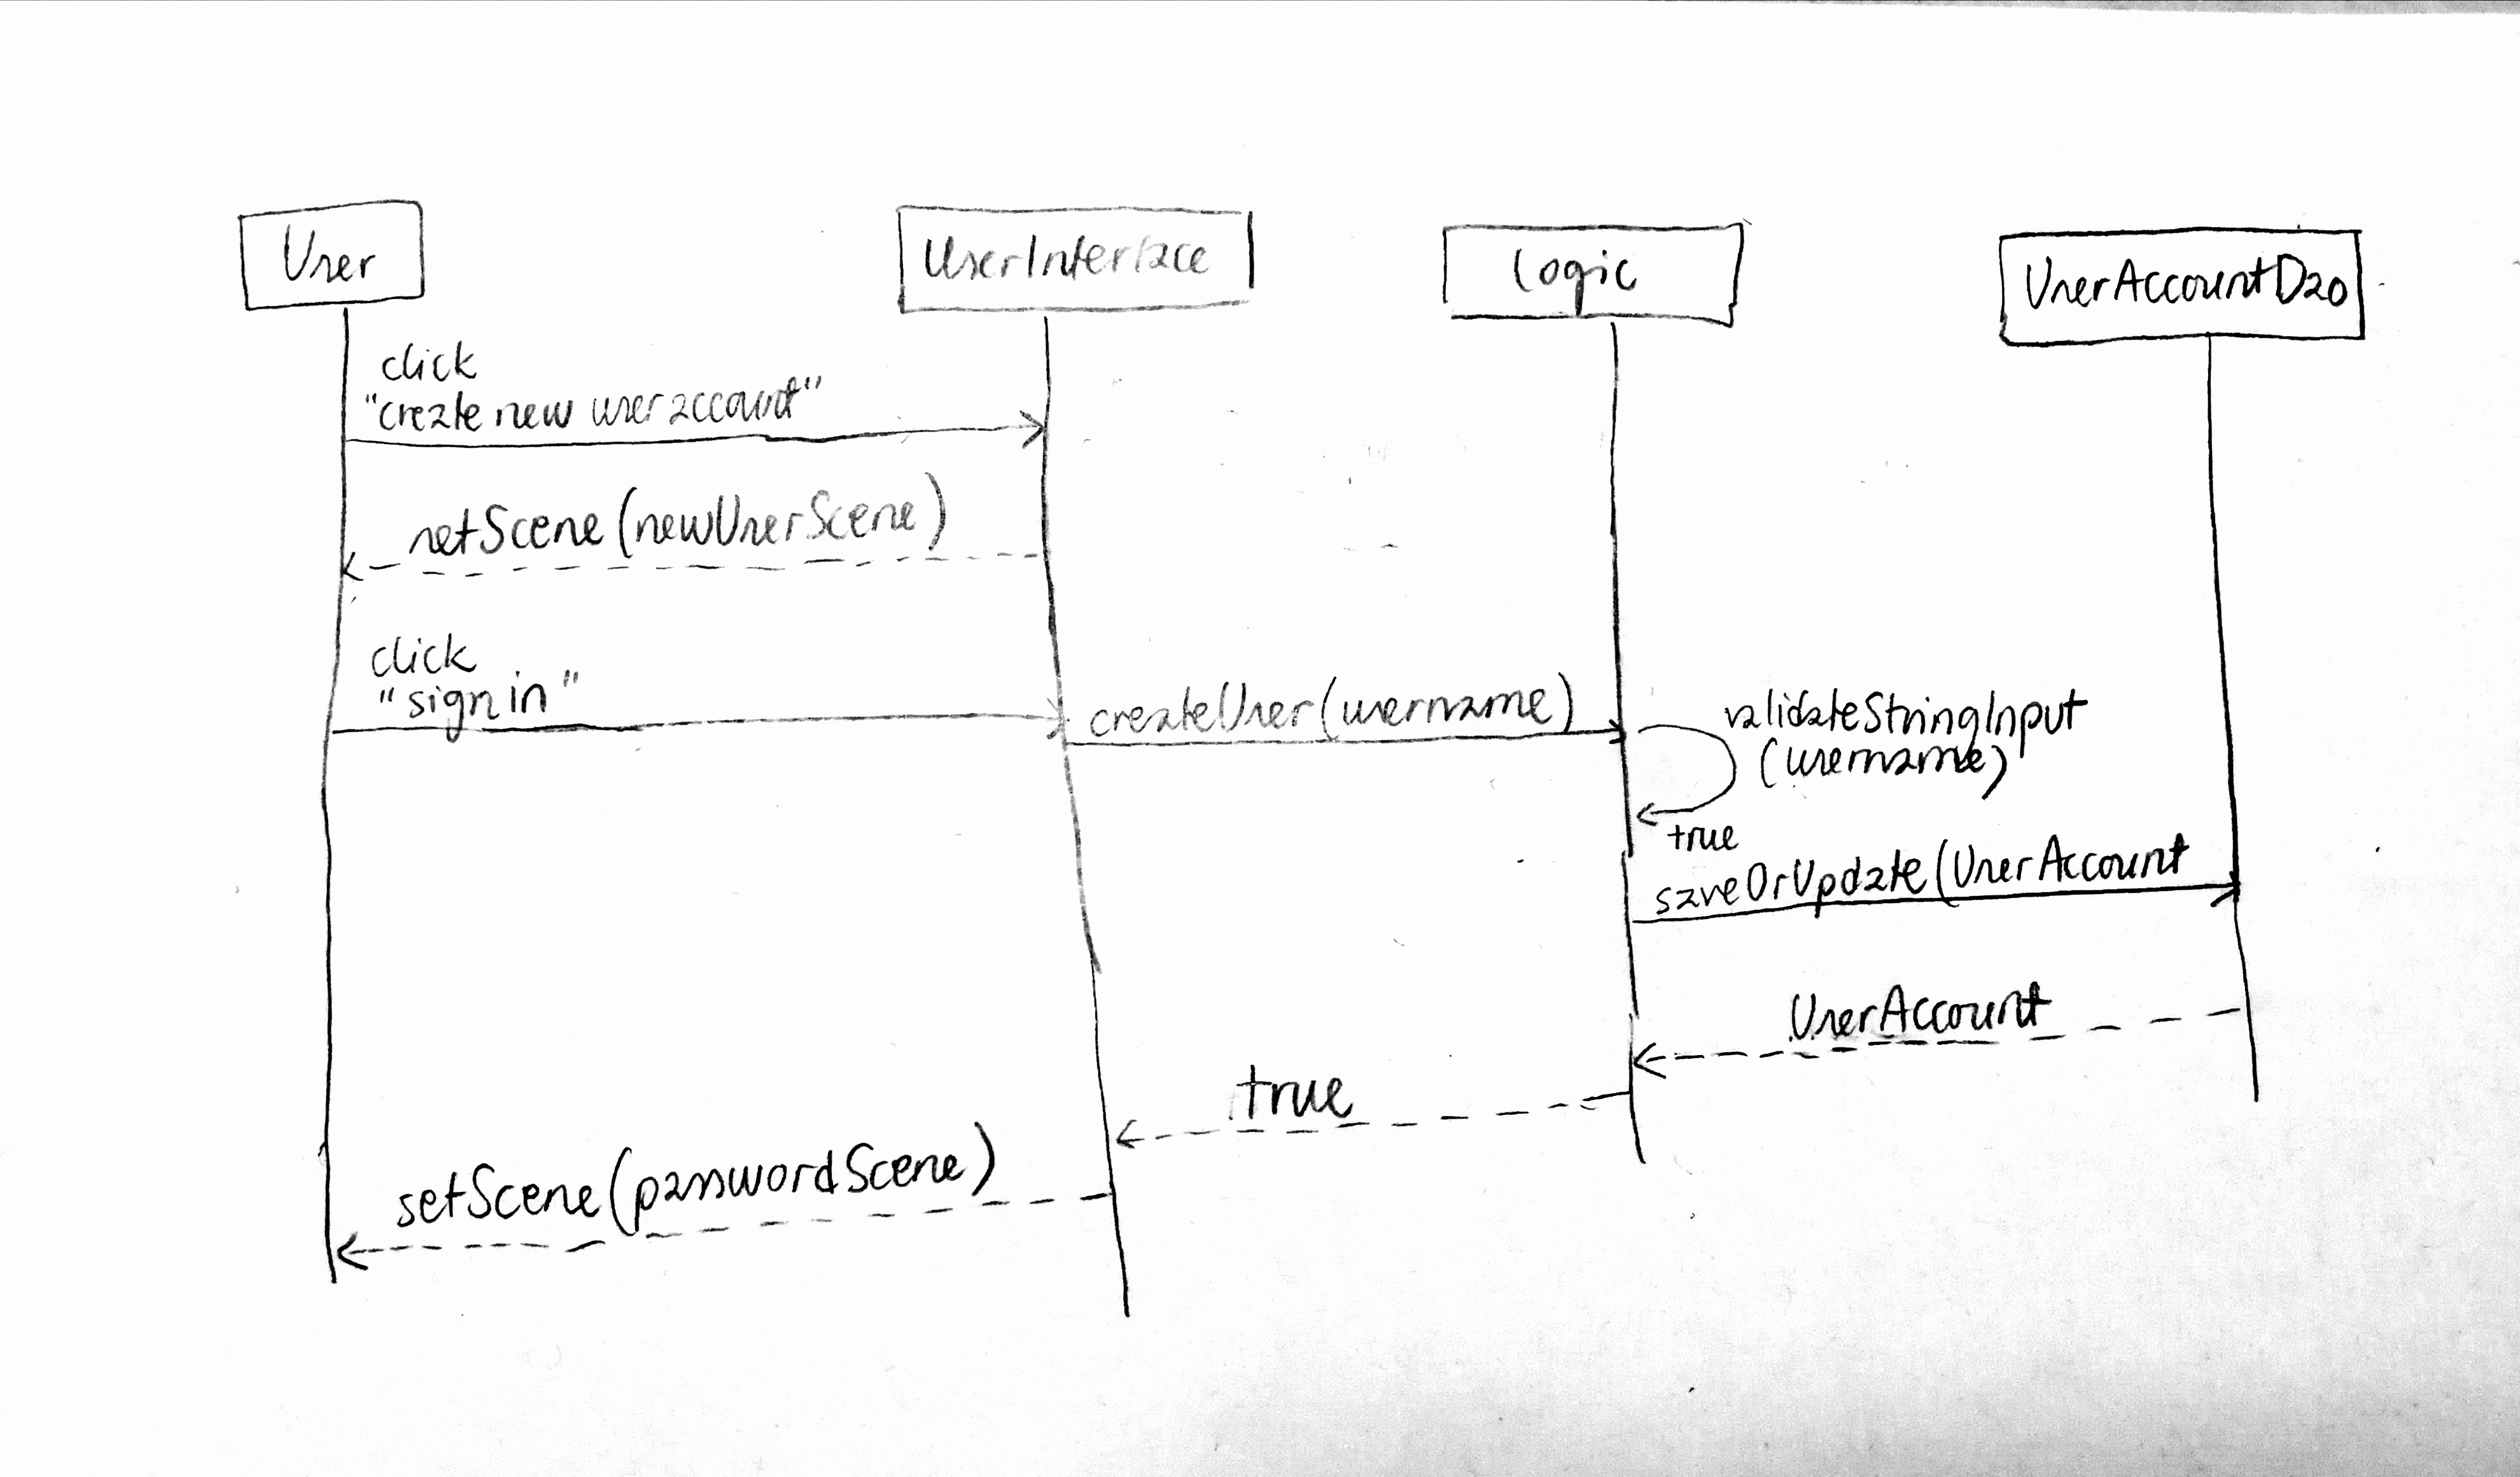 User
UserInterface
Logic
UserAccountDao
click
"create new useraccount"
setScene(newUserScene)
click
"sign in"
createUser(username)
validateStringInput
(username)
true
saveOrUpdate(UserAccount
UserAccount
true
setScene(passwordScene)